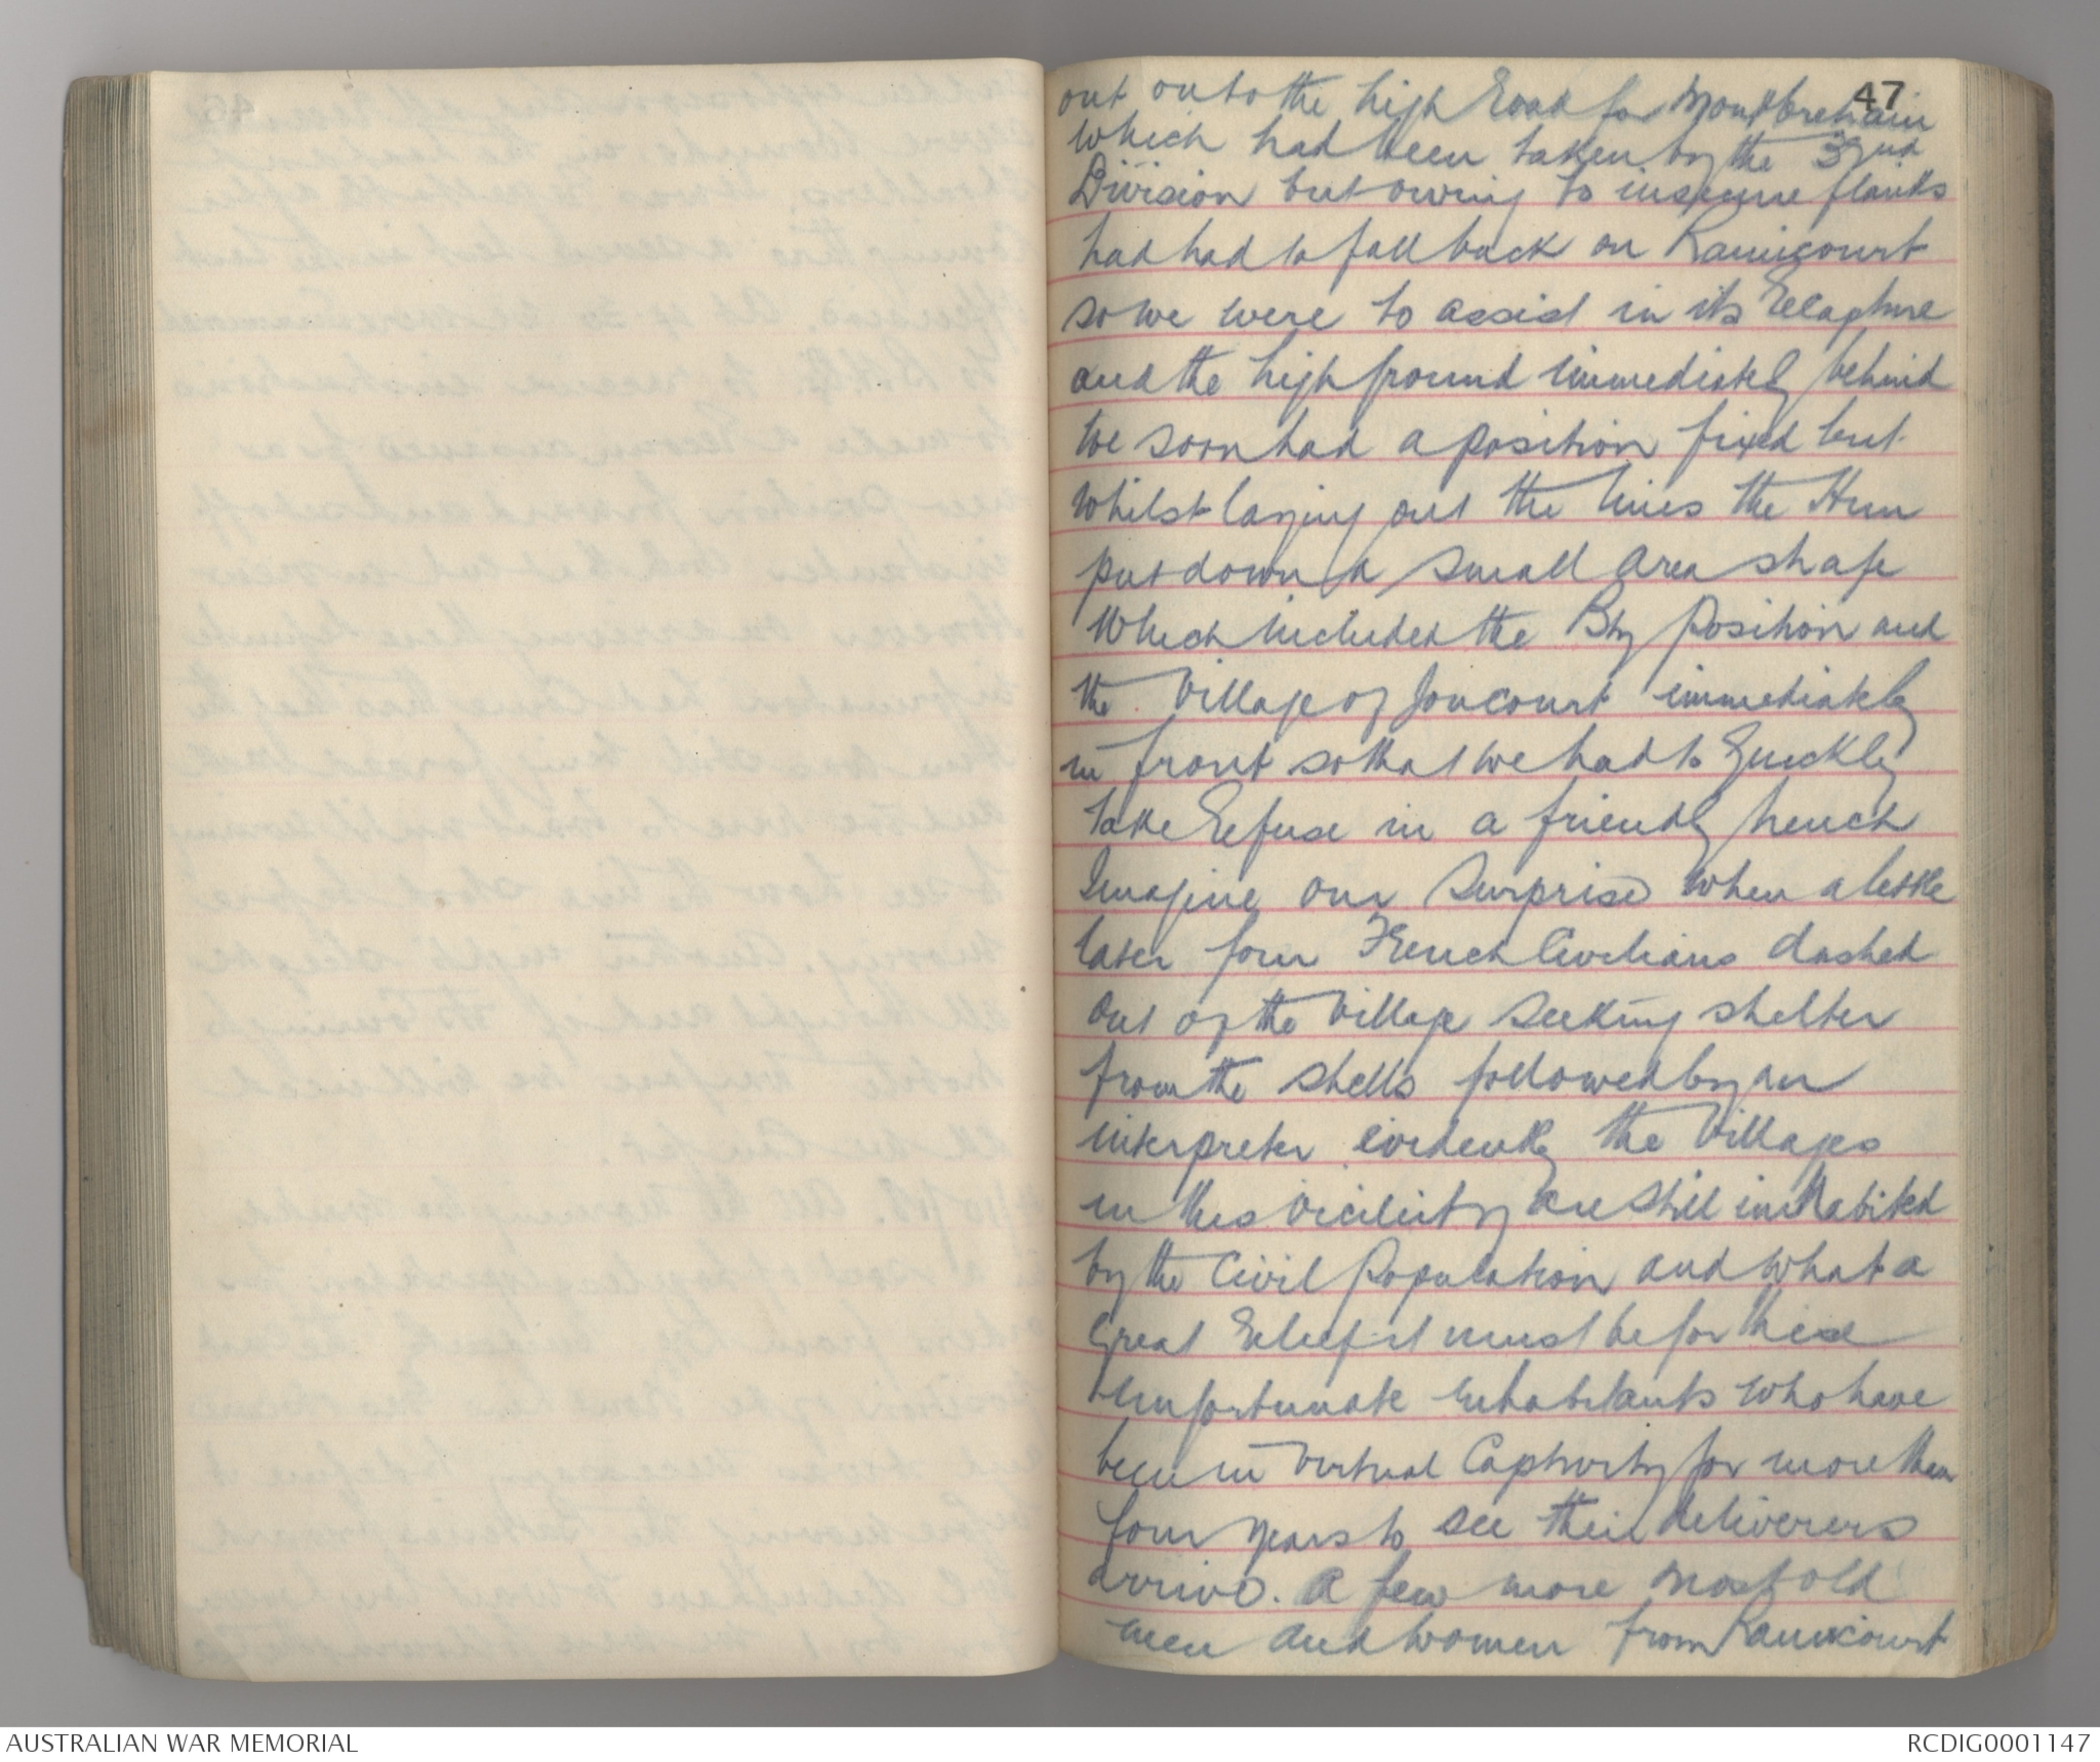 47
out onto the high Road for Montbrehain
which had been taken by the 32nd
Division but owing to insecure flanks
had had to fall back on Ramicourt
so we were to assist in its Recapture
and the high ground immediately behind
We soon had a position fixed but
whilst laying out the lines the Hun
put down a small area shafe
which included the Bty position and
the Village of Joncourt immediately
in front so that we had to Quickly
take Refuse in a friendly trench
Imagine our Surprise when a little
later four French Civilians dashed
out of the Village seeking shelter
from the shells followed by an
interpreter evidently the Villages
in this vicility are still inhabited
by the Civil Population and what a
Great Relief it must be for these
unfortunate inhabitants who have
been in virtual Captivity for more than
four years to see their deliverers
arrive. A few more most old
men and women from Ramicourt
AUSTRALIAN WAR MEMORIAL
RCDIG0001147